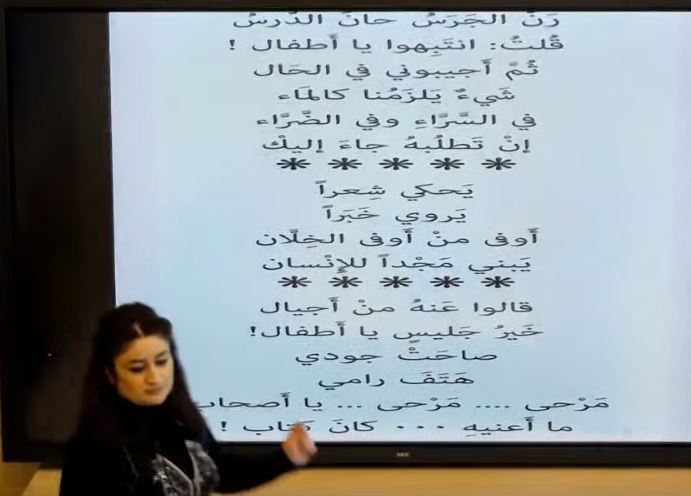 رَنَّ الجَرَسُ حانَ الدَّرسُ
قُلتُ: انتَبِهوا يا أَطفال !
ثُمَّ أَجيبوني في الحَال
شَيءٌ يَلزَمُنا كالمَاء
في السَّرَّاءِ وفي الضَّرَّاء
إنْ تَطلُبهُ جاءَ إليكْ
* * * * *
يَحكي شِعراً
يَروي خَبَراً
أَوفى منْ أَوفى الخِلَّان
يَبني مَجْداً للإنْسان
* * * * *
قالوا عَنهُ منْ أَجيال
خَيرُ جَليسٍ يا أَطفال!
صاحَتْ جودي
هَتَفَ رامي
مَرْحى .... مَرْحى ... يا أَصحاب
ما أَعنيهِ ... كانَ كتاب !
NEC